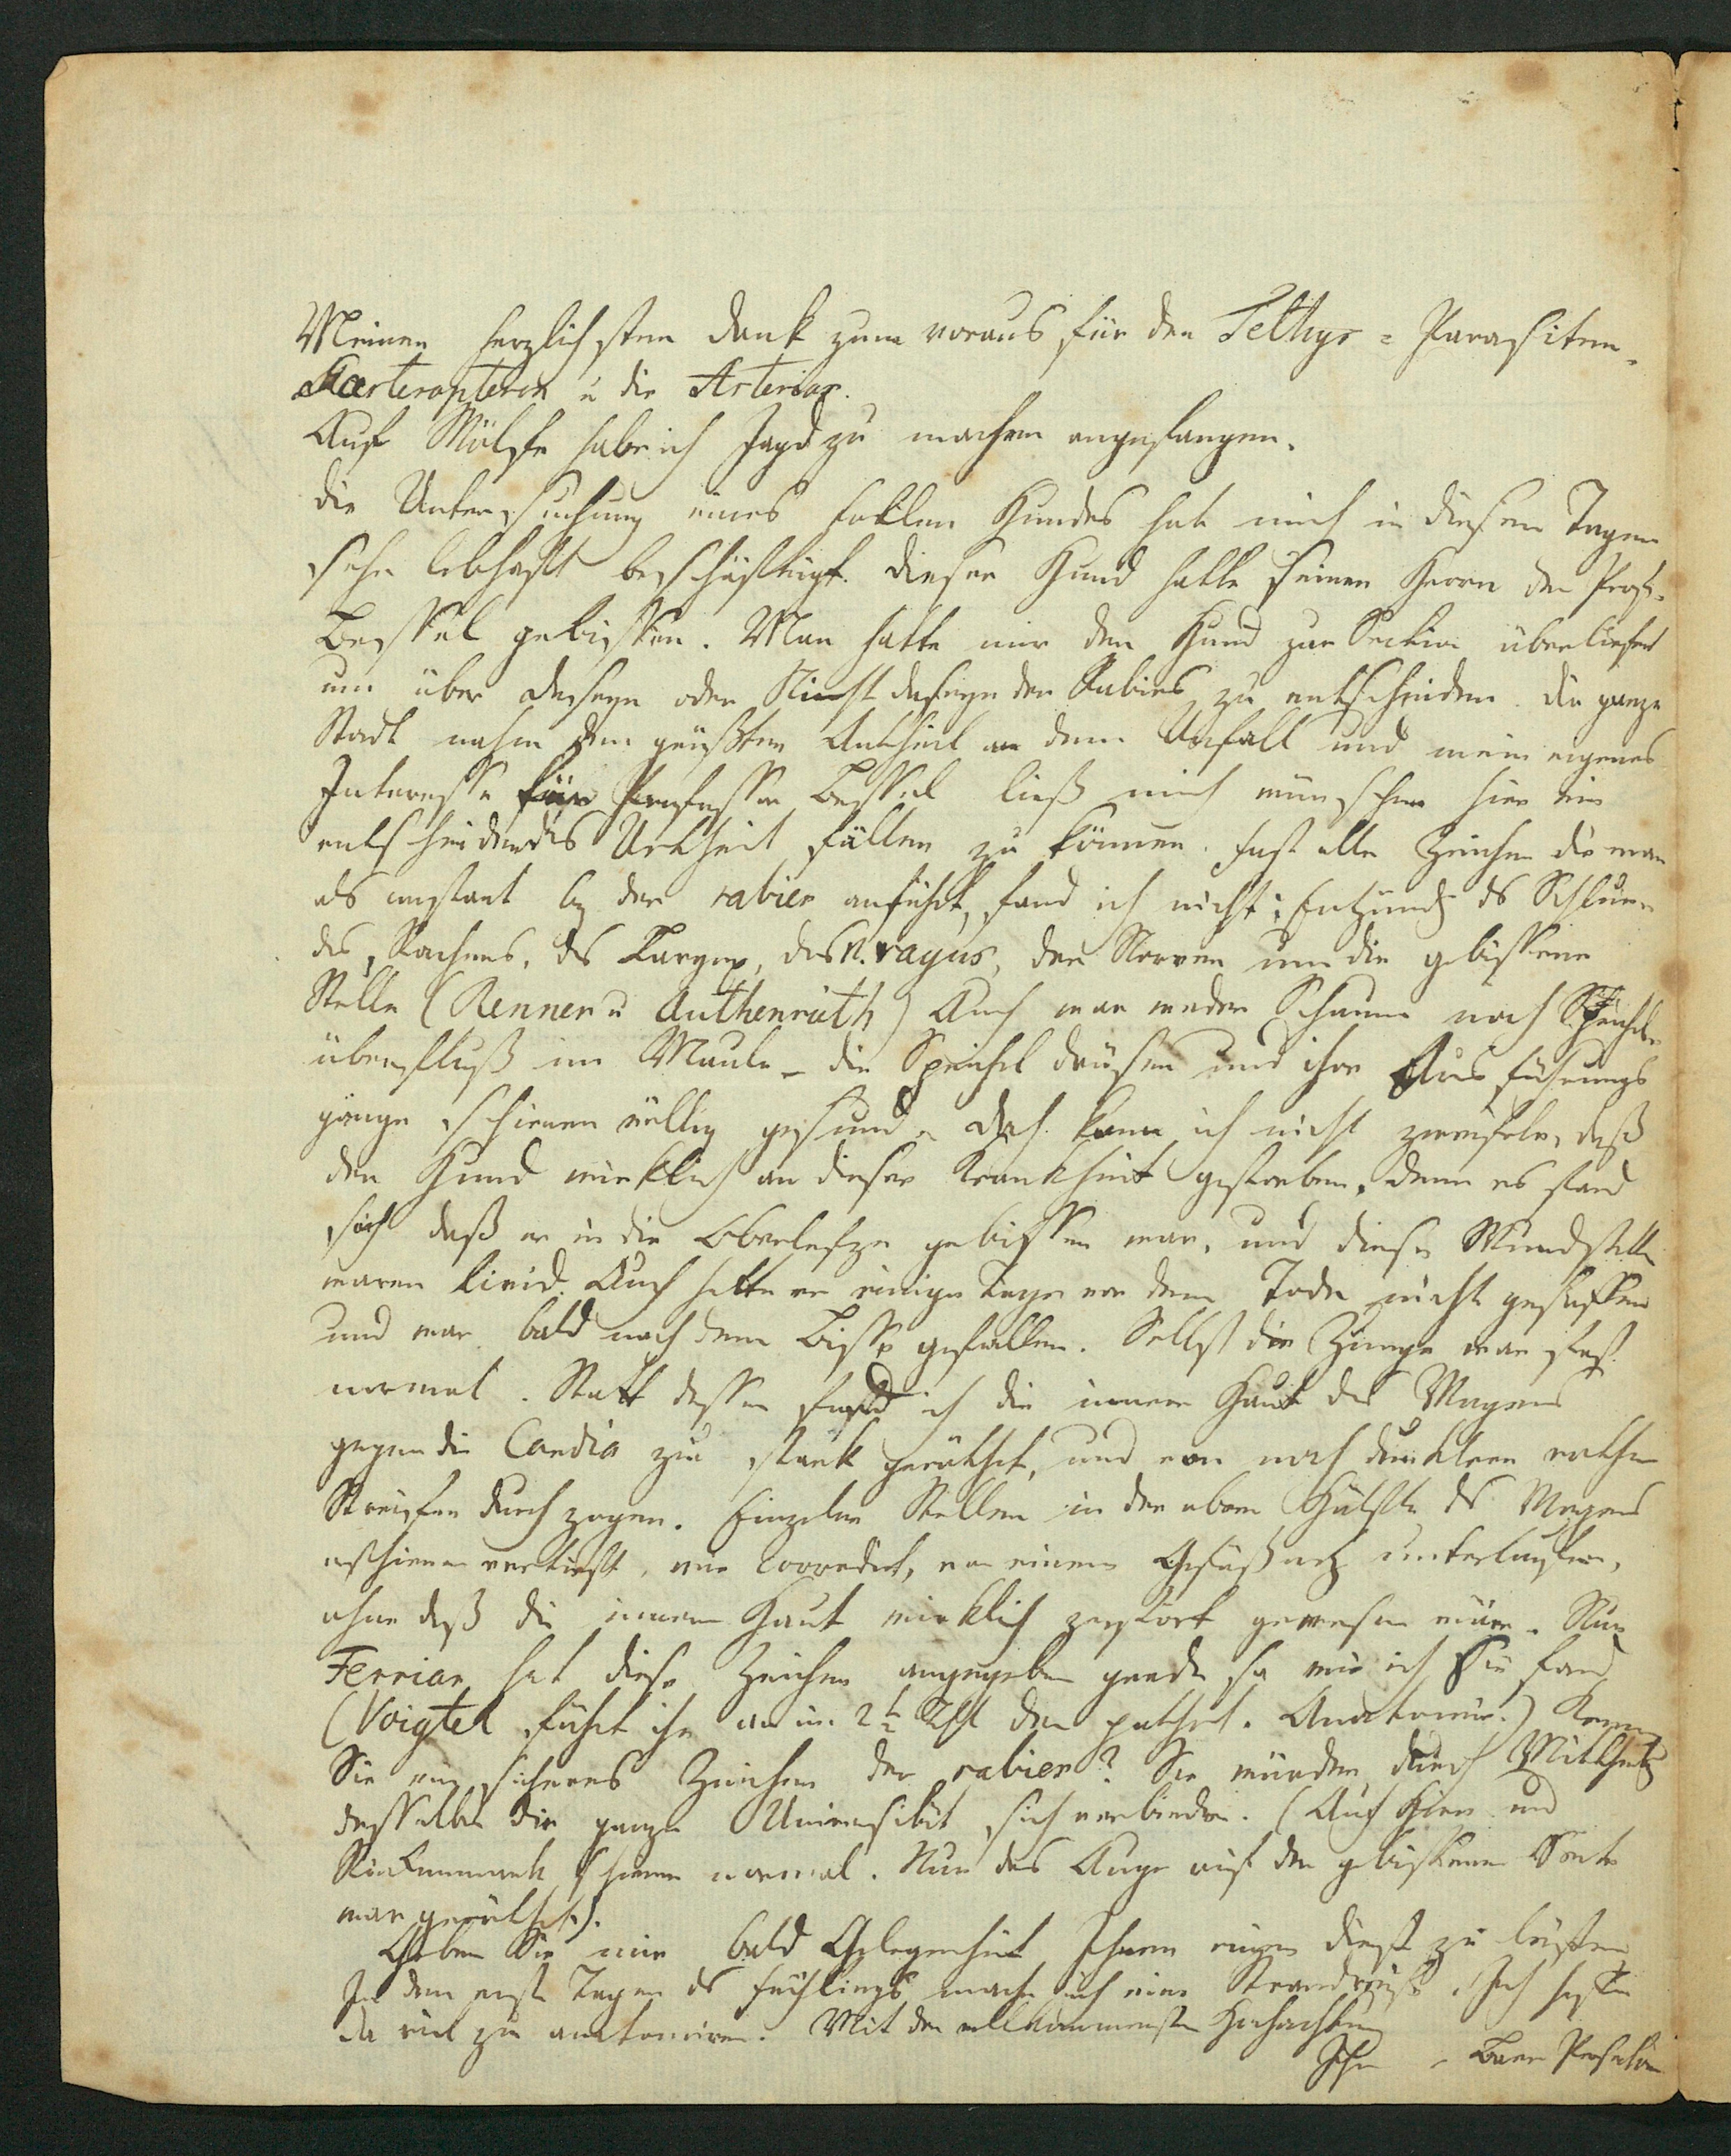 Meinen herzlichsten Dank zum voraus für den Tethys = Parasiten.
u die Asterias.
Auf Wölfe habe ich Jagd zu machen angefangen.
Die Untersuchung eines tollen Hundes hat mich in diesen Tagen
sehr lebhaft beschäftigt. Dieser Hund hatte seinen Herrn den Prof.
Bessel gebissen. Man hatte mir den Hund zur Section überliefert
um über Daseyn oder Nichtdaseyn der Rabies zu entscheiden. Die ganze
Stadt nahm den größten Antheil an dem Unfall und mein eigenes
Interesse für Professor Bessel ließ mich wünschen hier ein
entscheidendes Urtheil fällen zu können. Fast alle Zeichen die man
als constant bey der rabies anführt, fand ich nicht: Entzündg ds
des Rachens, ds Larynx, des N. vagus, der Nerven um die gebissene
Stelle (Renner u Authenrieth) Auch war weder Schaum noch Speichel
überfluß im Maule – die Speicheldrüsen und ihre Ausführungs
gänge schienen völlig gesund. Doch kann ich nicht zweifeln, daß
der Hund wirklich an dieser Krankheit gestorben, denn es fand
sich daß er in die Oberlefze gebissen war, und diese Wundstellen
waren livid. Auch hatte er einige Tage vor dem Tode nicht gefressen
und war bald nach dem Bisse gefallen. Selbst die Zunge war fast
normal. Statt dessen fand ich die innere Haut des Magens
gegen die Cardia zu stark geröthet, und von noch dunkleren rothen
Streifen durchzogen. Einzelne Stellen in der obern Hälfte ds Magens
erschienen vertieft, wie corrodirt, von einem Gefäßnetz unterlaufen,
ohne daß die innere Haut wirklich zerstört gewesen wäre. Nur
Ferriar hat diese Zeichen angegeben grade so wie ich sie fand
(Voigtel führt ihn an im 2t der pathol. Anatomie.) Kennen
Sie ein sicheres Zeichen der rabies? Sie würden durch Mittheilg
desselben die ganze Universität sich verbinden. (Auch Hirn und
Rückenmark schienen normal. Nur das Auge auf der gebissenen Seite
war geröthet).
Geben Sie mir bald Gelegenheit Ihnen einen Dienst zu leisten
In den ersten Tagen ds Frühlings mache ich eine Strandreise. Ich hoffe
da viel zu anatomiren. Mit der vollkommensten Hochachtung
Ihr Baer